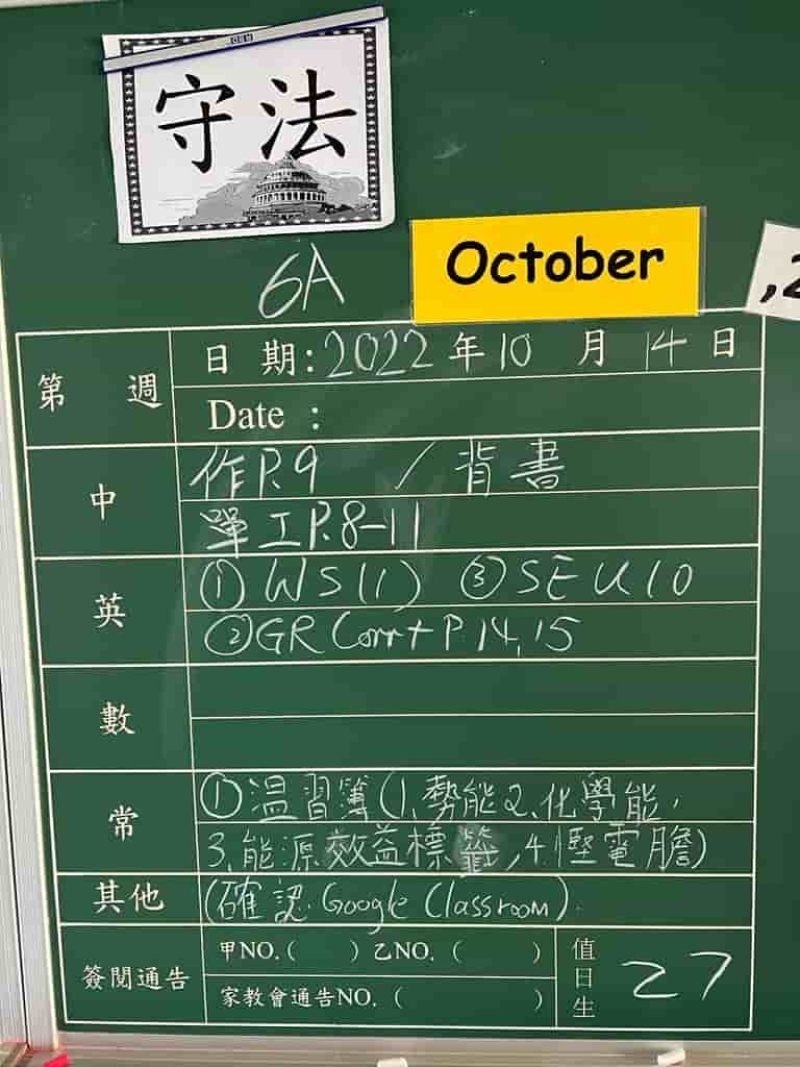 守法
October
6A
第 週
日 期:2022年10 月 14日
Date :
中
作P.9 / 背書
單工P.8-11
英
① WS(1) ③SE U10
②GR Corr+P.14,15
數
常
①温習簿(1.勢能2.化學能,
3.能源效益標籤,4.慳電膽)
其他
(確認 Google Classroom).
簽閱通告
甲NO.( ) 乙NO.( )
家教會通告NO.( )
值日生
27